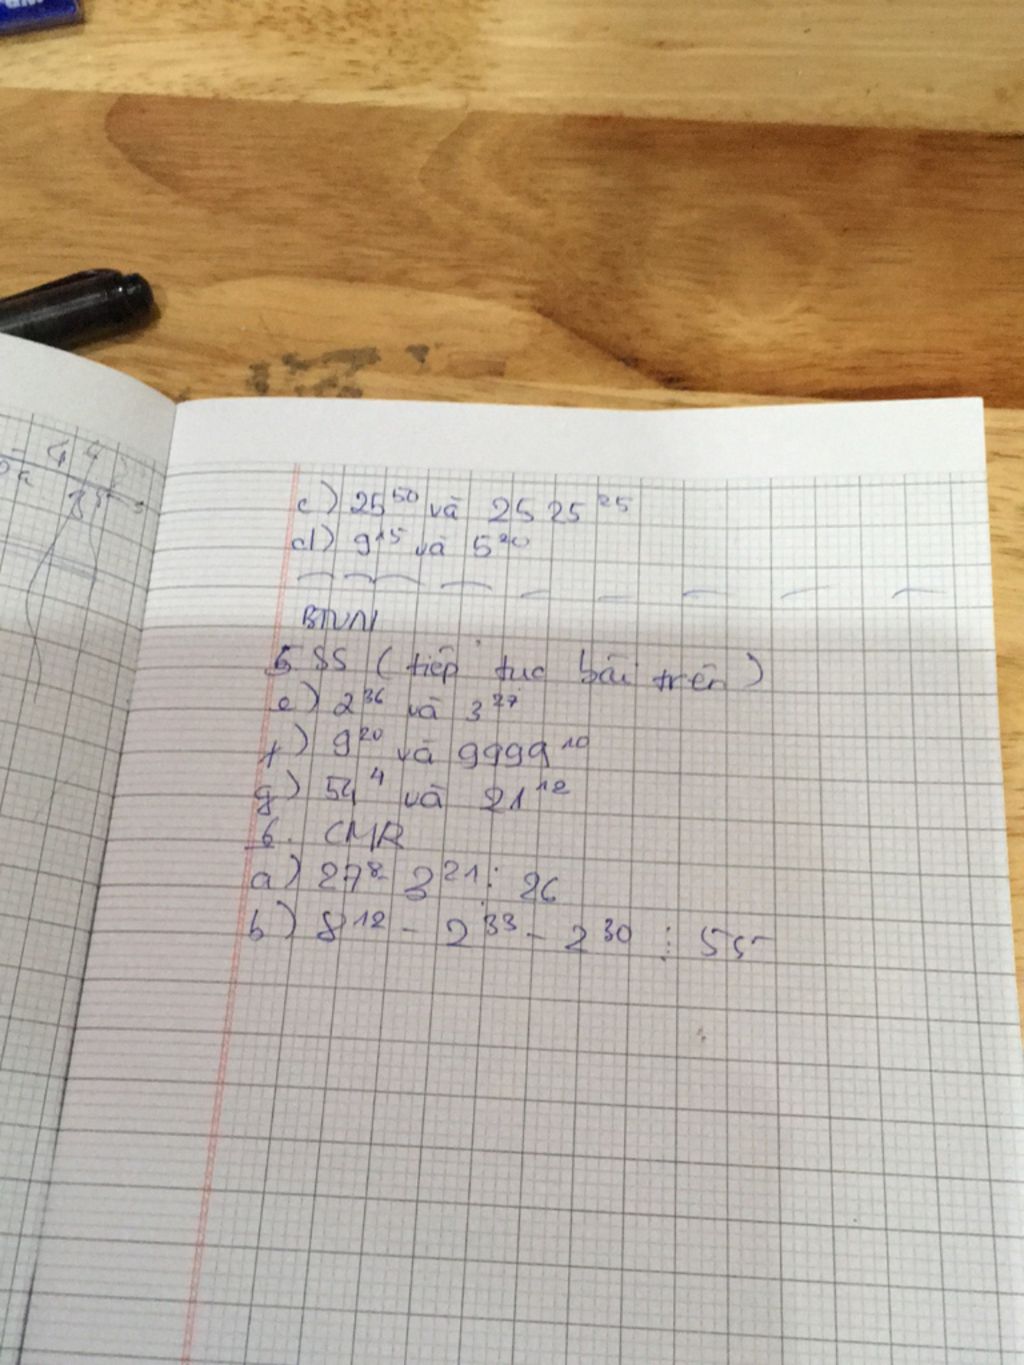 c) 25⁵⁰ và 2525²⁵
d) 9¹⁵ và 5²⁰
BTVN
5. SS (tiếp tục bài trên)
e) 2³⁶ và 3²⁷
f) 9²⁰ và 9999¹⁰
g) 54⁴ và 21¹²
6. CMR
a) 27⁸ 3²¹ ⋮ 26
b) 8¹² - 2³³ - 2³⁰ ⋮ 55